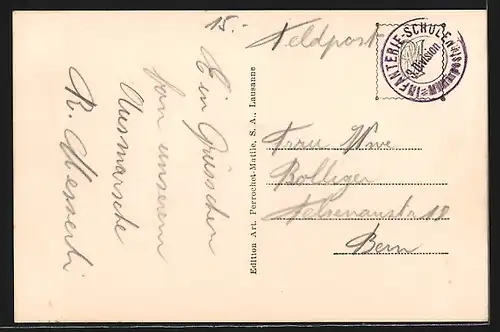 15.-
Ein Grüsschen
von unserem
Ausmarsche
R. Messerli
Edition Art. Perrochet-Matile, S. A., Lausanne
Feldpost
INFANTERIE-SCHULEN
3. Division
Frau Wwe
Bolliger
Felsenaustr 18
Bern